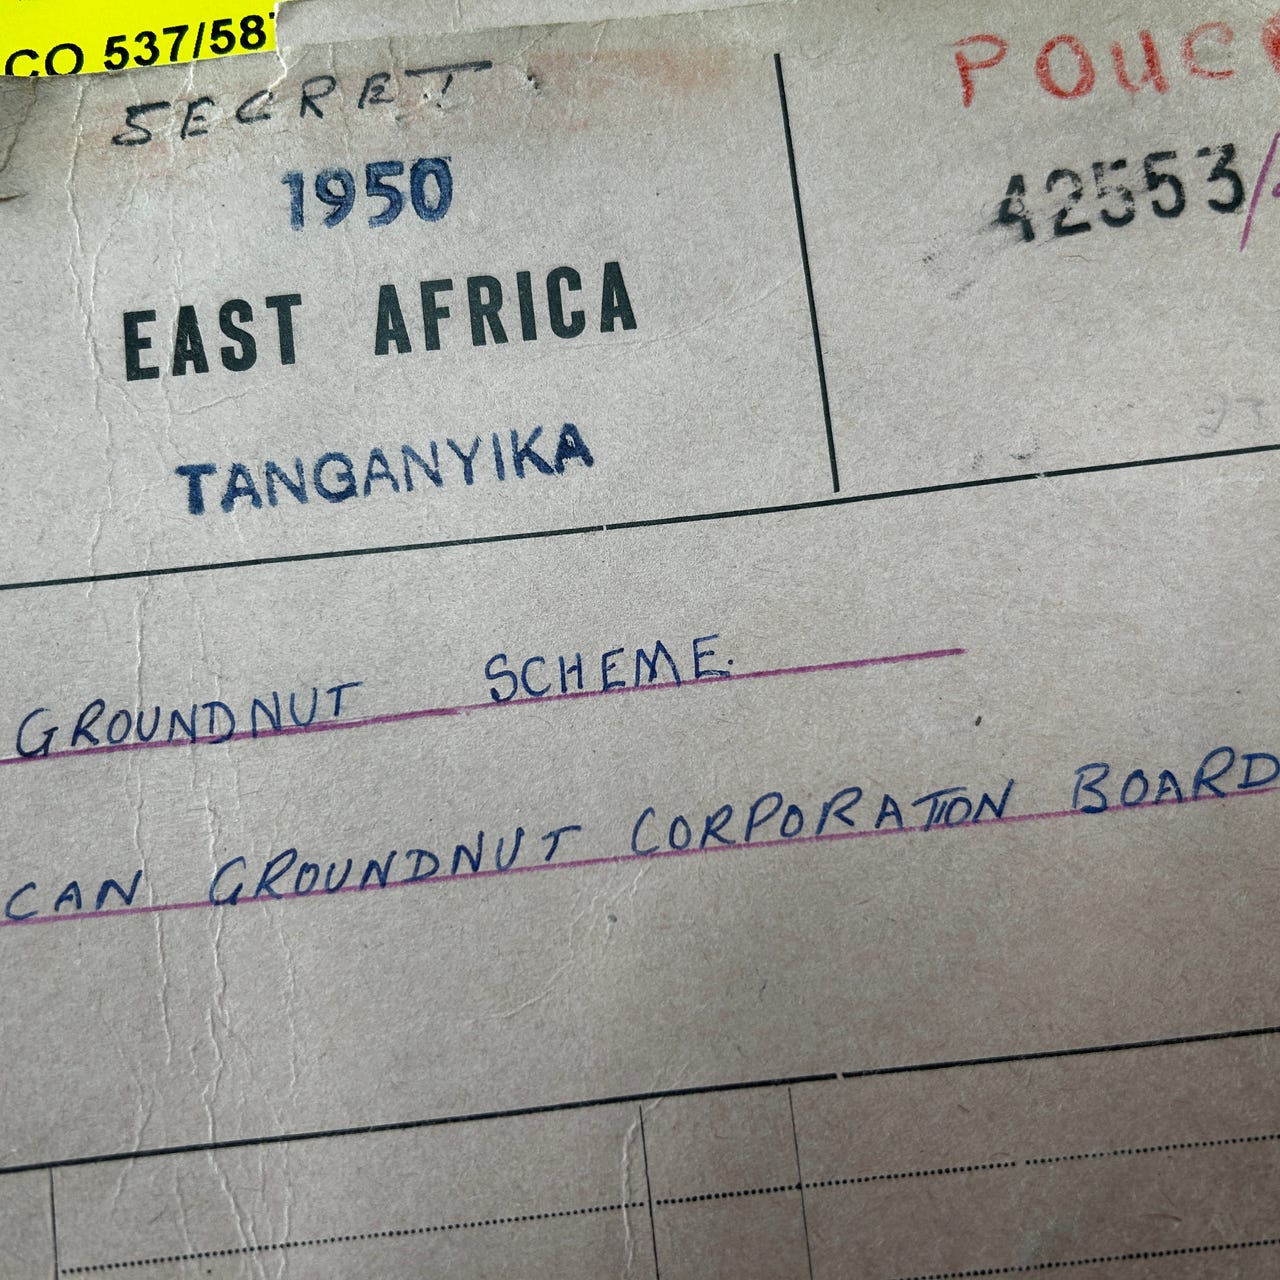 CO 537/58
SECRET
POUC
1950
42553/
EAST AFRICA
TANGANYIKA
GROUNDNUT SCHEME.
CAN GROUNDNUT CORPORATION BOARD